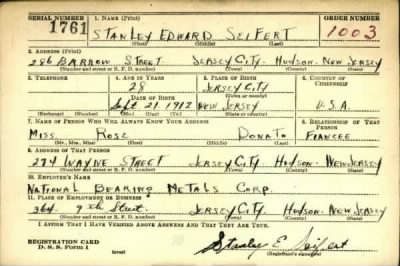 SERIAL NUMBER 1. NAME (Print) ORDER NUMBER
1761 STANLEY EDWARD SEIFERT 1003
(First) (Middle) (Last)
2. ADDRESS (Print)
286 BARROW STREET JERSEY CITY - HUDSON - NEW JERSEY
(Number and street or R. F. D. number) (Town) (County) (State)
3. TELEPHONE 4. AGE IN YEARS 5. PLACE OF BIRTH 6. COUNTRY OF CITIZENSHIP
28 JERSEY CITY
DATE OF BIRTH (Town or county)
Sept 21. 1912 NEW JERSEY U.S.A.
(Exchange) (Number) (Mo.) (Day) (Yr.) (State or country)
7. NAME OF PERSON WHO WILL ALWAYS KNOW YOUR ADDRESS 8. RELATIONSHIP OF THAT PERSON
MISS. ROSE DONATO FIANCEE
(Mr., Mrs., Miss) (First) (Middle) (Last)
9. ADDRESS OF THAT PERSON
274 WAYNE STREET JERSEY CITY HUDSON - NEW JERSEY
(Number and street or R. F. D. number) (Town) (County) (State)
10. EMPLOYER'S NAME
NATIONAL BEARING METALS CORP.
11. PLACE OF EMPLOYMENT OR BUSINESS
364 9th Street. JERSEY CITY HUDSON. NEW JERSEY
(Number and street or R. F. D. number) (Town) (County) (State)
I AFFIRM THAT I HAVE VERIFIED ABOVE ANSWERS AND THAT THEY ARE TRUE.
REGISTRATION CARD
D. S. S. Form 1 (over) Stanley E. Seifert
(Registrant's signature)